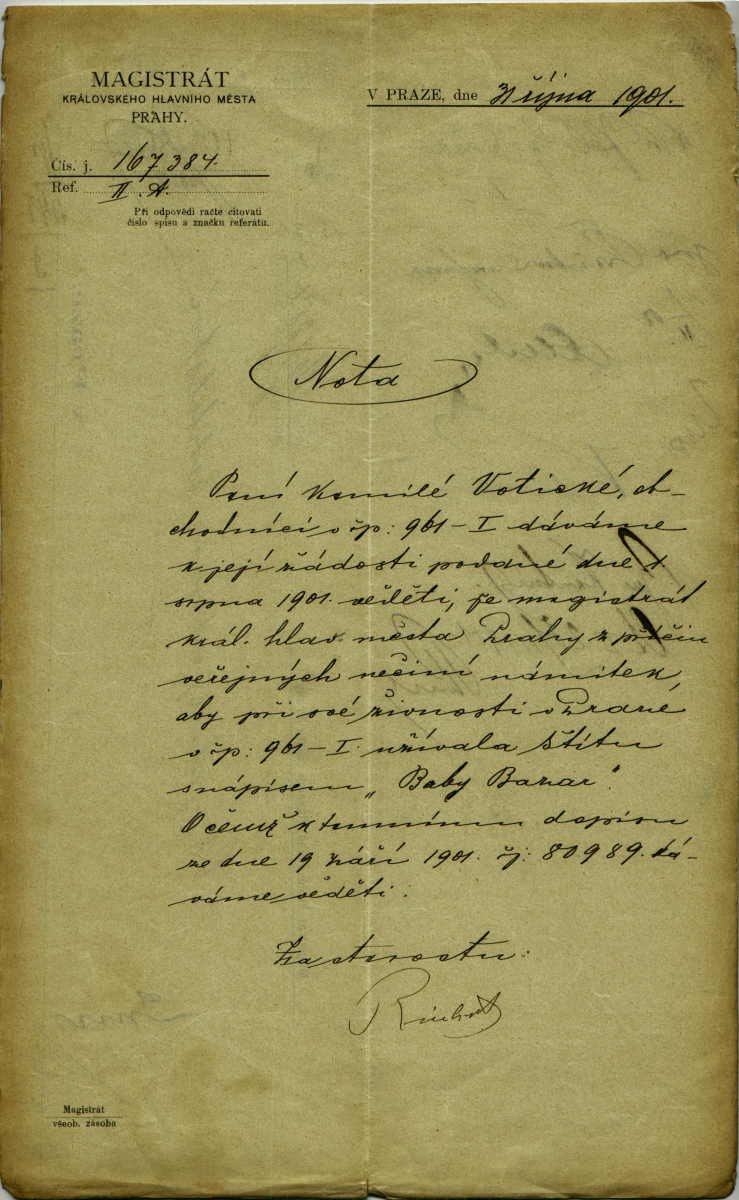 MAGISTRÁT
KRÁLOVSKÉHO HLAVNÍHO MĚSTA
PRAHY.
V PRAZE, dne 31 října 1901.
Čís. j. 167384.
Ref. II. A.
Při odpovědi račte citovati
číslo spisu a značku referátu.
Nota
Paní Kamilé Votické, ob-
chodnici v čp: 961-I dáváme
k její žádosti podané dne
srpna 1901. věděti, že magistrát
král. hlav. města Prahy z příčin
veřejných nečiní námitek,
aby při své živnosti v Praze
v čp: 961-I. užívala štítu
s nápisem „Baby Bazar".
O čemž k tamnímu dopisu
ze dne 19 září 1901. čj: 80989. dá-
váme věděti.
Za starostu:
Magistrát
všeob. zásoba